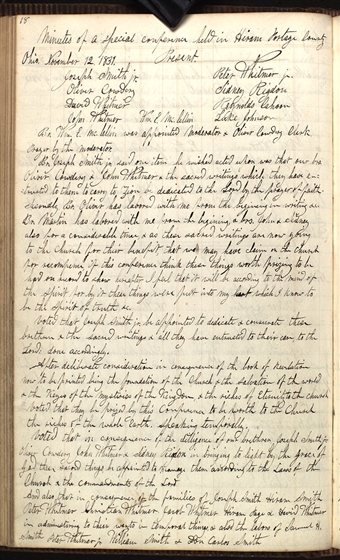 18
Minutes of a special conference held in Hiram Portage County
Ohio November 12. 1831. Present
Joseph Smith jr. Peter Whitmer jr.
Oliver Cowdery Sidney Rigdon
David Whitmer Reynolds Cahoon
John Whitmer Wm E. McLelin Luke Johnson
Br. Wm E. McLelin was appointed Moderator & Oliver Cowdery Clerk.
Prayer by the moderator
Br. Joseph Smith jr. said one item he wished acted upon was that our br
Oliver Cowdery & John Whitmer & the sacred writings which they have en-
trusted to them to carry to Zion be dedicated to the Lord by the prayer of faith.
Secondly, Br. Oliver has labored with me from the beginning in writing &c
Br. Martin has labored with me from the beginning & brs. John & Sidney
also for a considerable time, & as these sacred writings are now going
to the Church for their benefit that we may have claim on the Church
for recompence if this conference think these things worth prizing to be
had on record to show hereafter I feel that it will be according to the mind of
the Spirit for by it these things were put into my heart which I know to
be the Spirit of truth &c.
Voted that Joseph Smith jr. be appointed to dedicate & consecrate these
brethren & the sacred writings & all they have entrusted to their care, to the
Lord: done accordingly.
After deliberate consideration in consequence of the book of revelations
now to be printed being the foundation of the Church & the salvation of the world
& the Keys of the mysteries of the Kingdom & the riches of Eternity to the church
Voted that they be prized by this Conference to be worth to the Church
the riches of the whole Earth, speaking temporally.
Voted that in consequence of the diligence of our brethren, Joseph Smith jr
Oliver Cowdery John Whitmer & Sidney Rigdon in bringing to light by the grace of
God these sacred things, be appointed to manage them according to the Laws of the
Church & the commandments of the Lord
And also that in consequence of the families of Joseph Smith Hiram Smith
Peter Whitmer Christian Whitmer Jacob Whitmer Hiram Page & David Whitmer
in administering to their wants in temporal things & also the labors of Samuel H.
Smith Peter Whitmer jr. William Smith & Don Carlos Smith